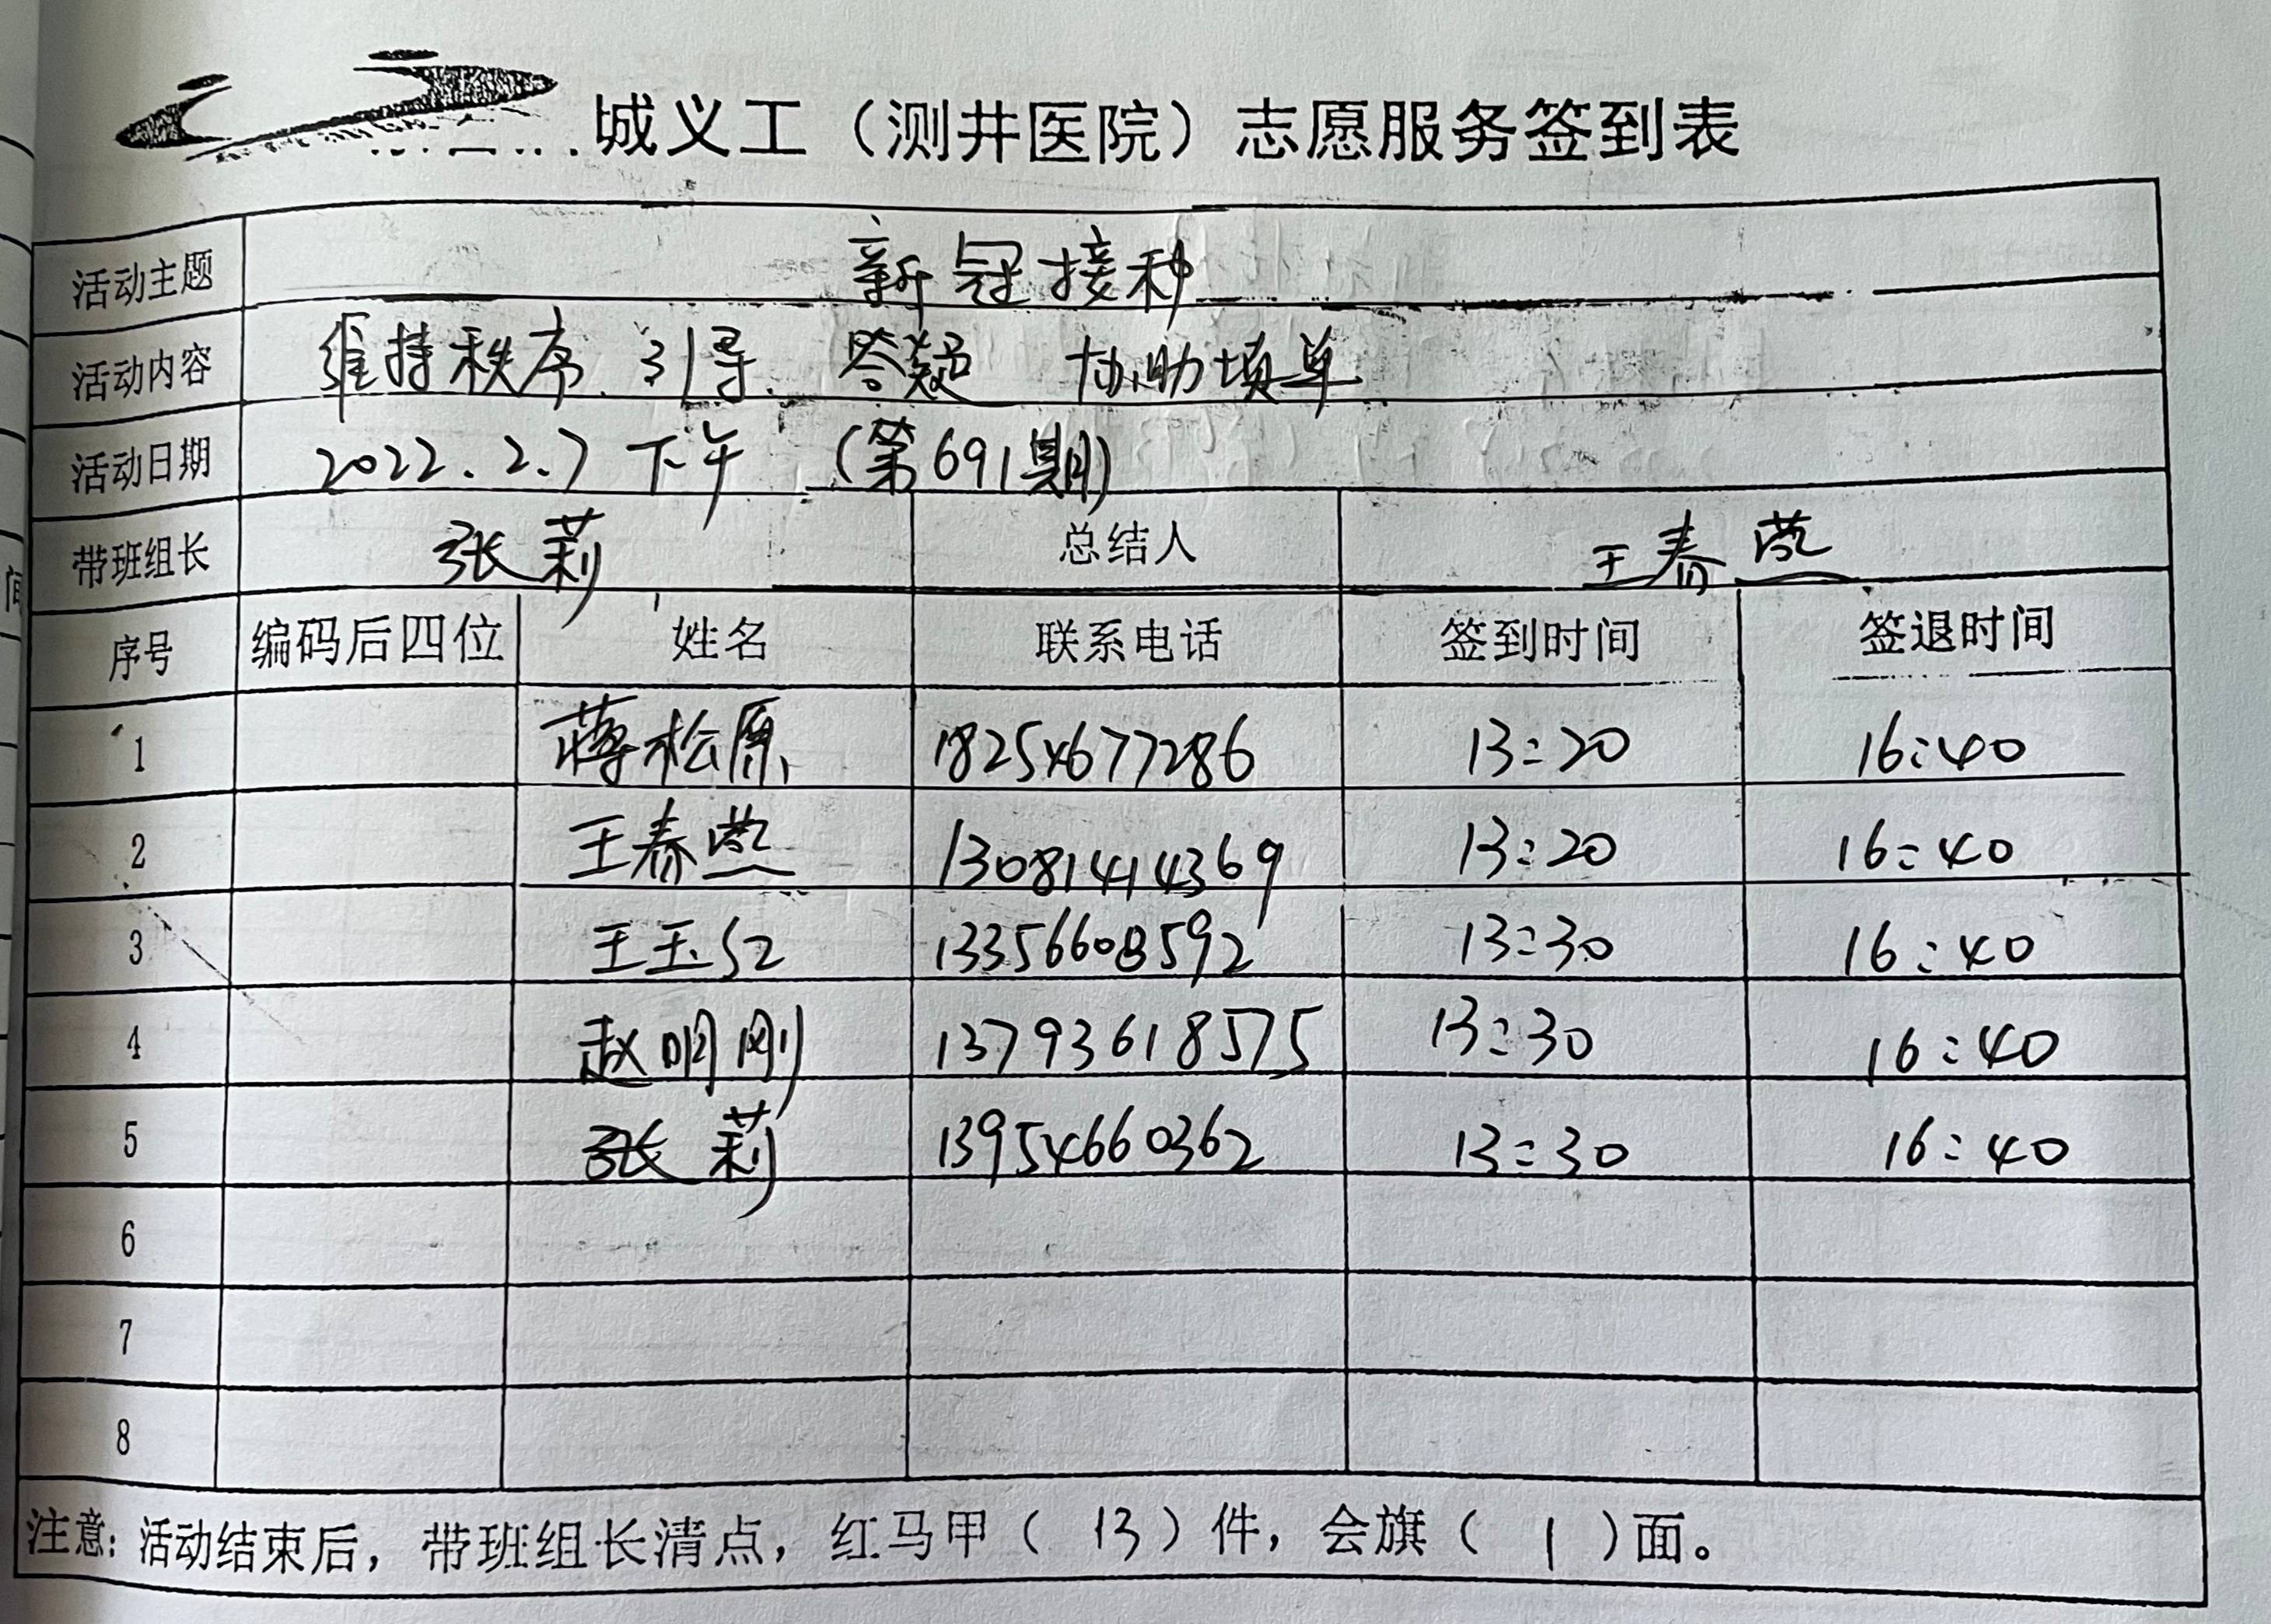 城义工（测井医院）志愿服务签到表
活动主题 新冠接种
活动内容 维持秩序、引导、答疑 协助填单
活动日期 2022.2.7 下午 （第691期）
带班组长 张莉 总结人 王春燕
序号 编码后四位 姓名 联系电话 签到时间 签退时间
1 蒋松原 18254677286 13:20 16:40
2 王春燕 13081414369 13:20 16:40
3 王玉红 13356608592 13:30 16:40
4 赵明刚 13793618575 13:30 16:40
5 张莉 13954660362 13:30 16:40
6
7
8
注意：活动结束后，带班组长清点，红马甲（ 13 ）件，会旗（ 1 ）面。